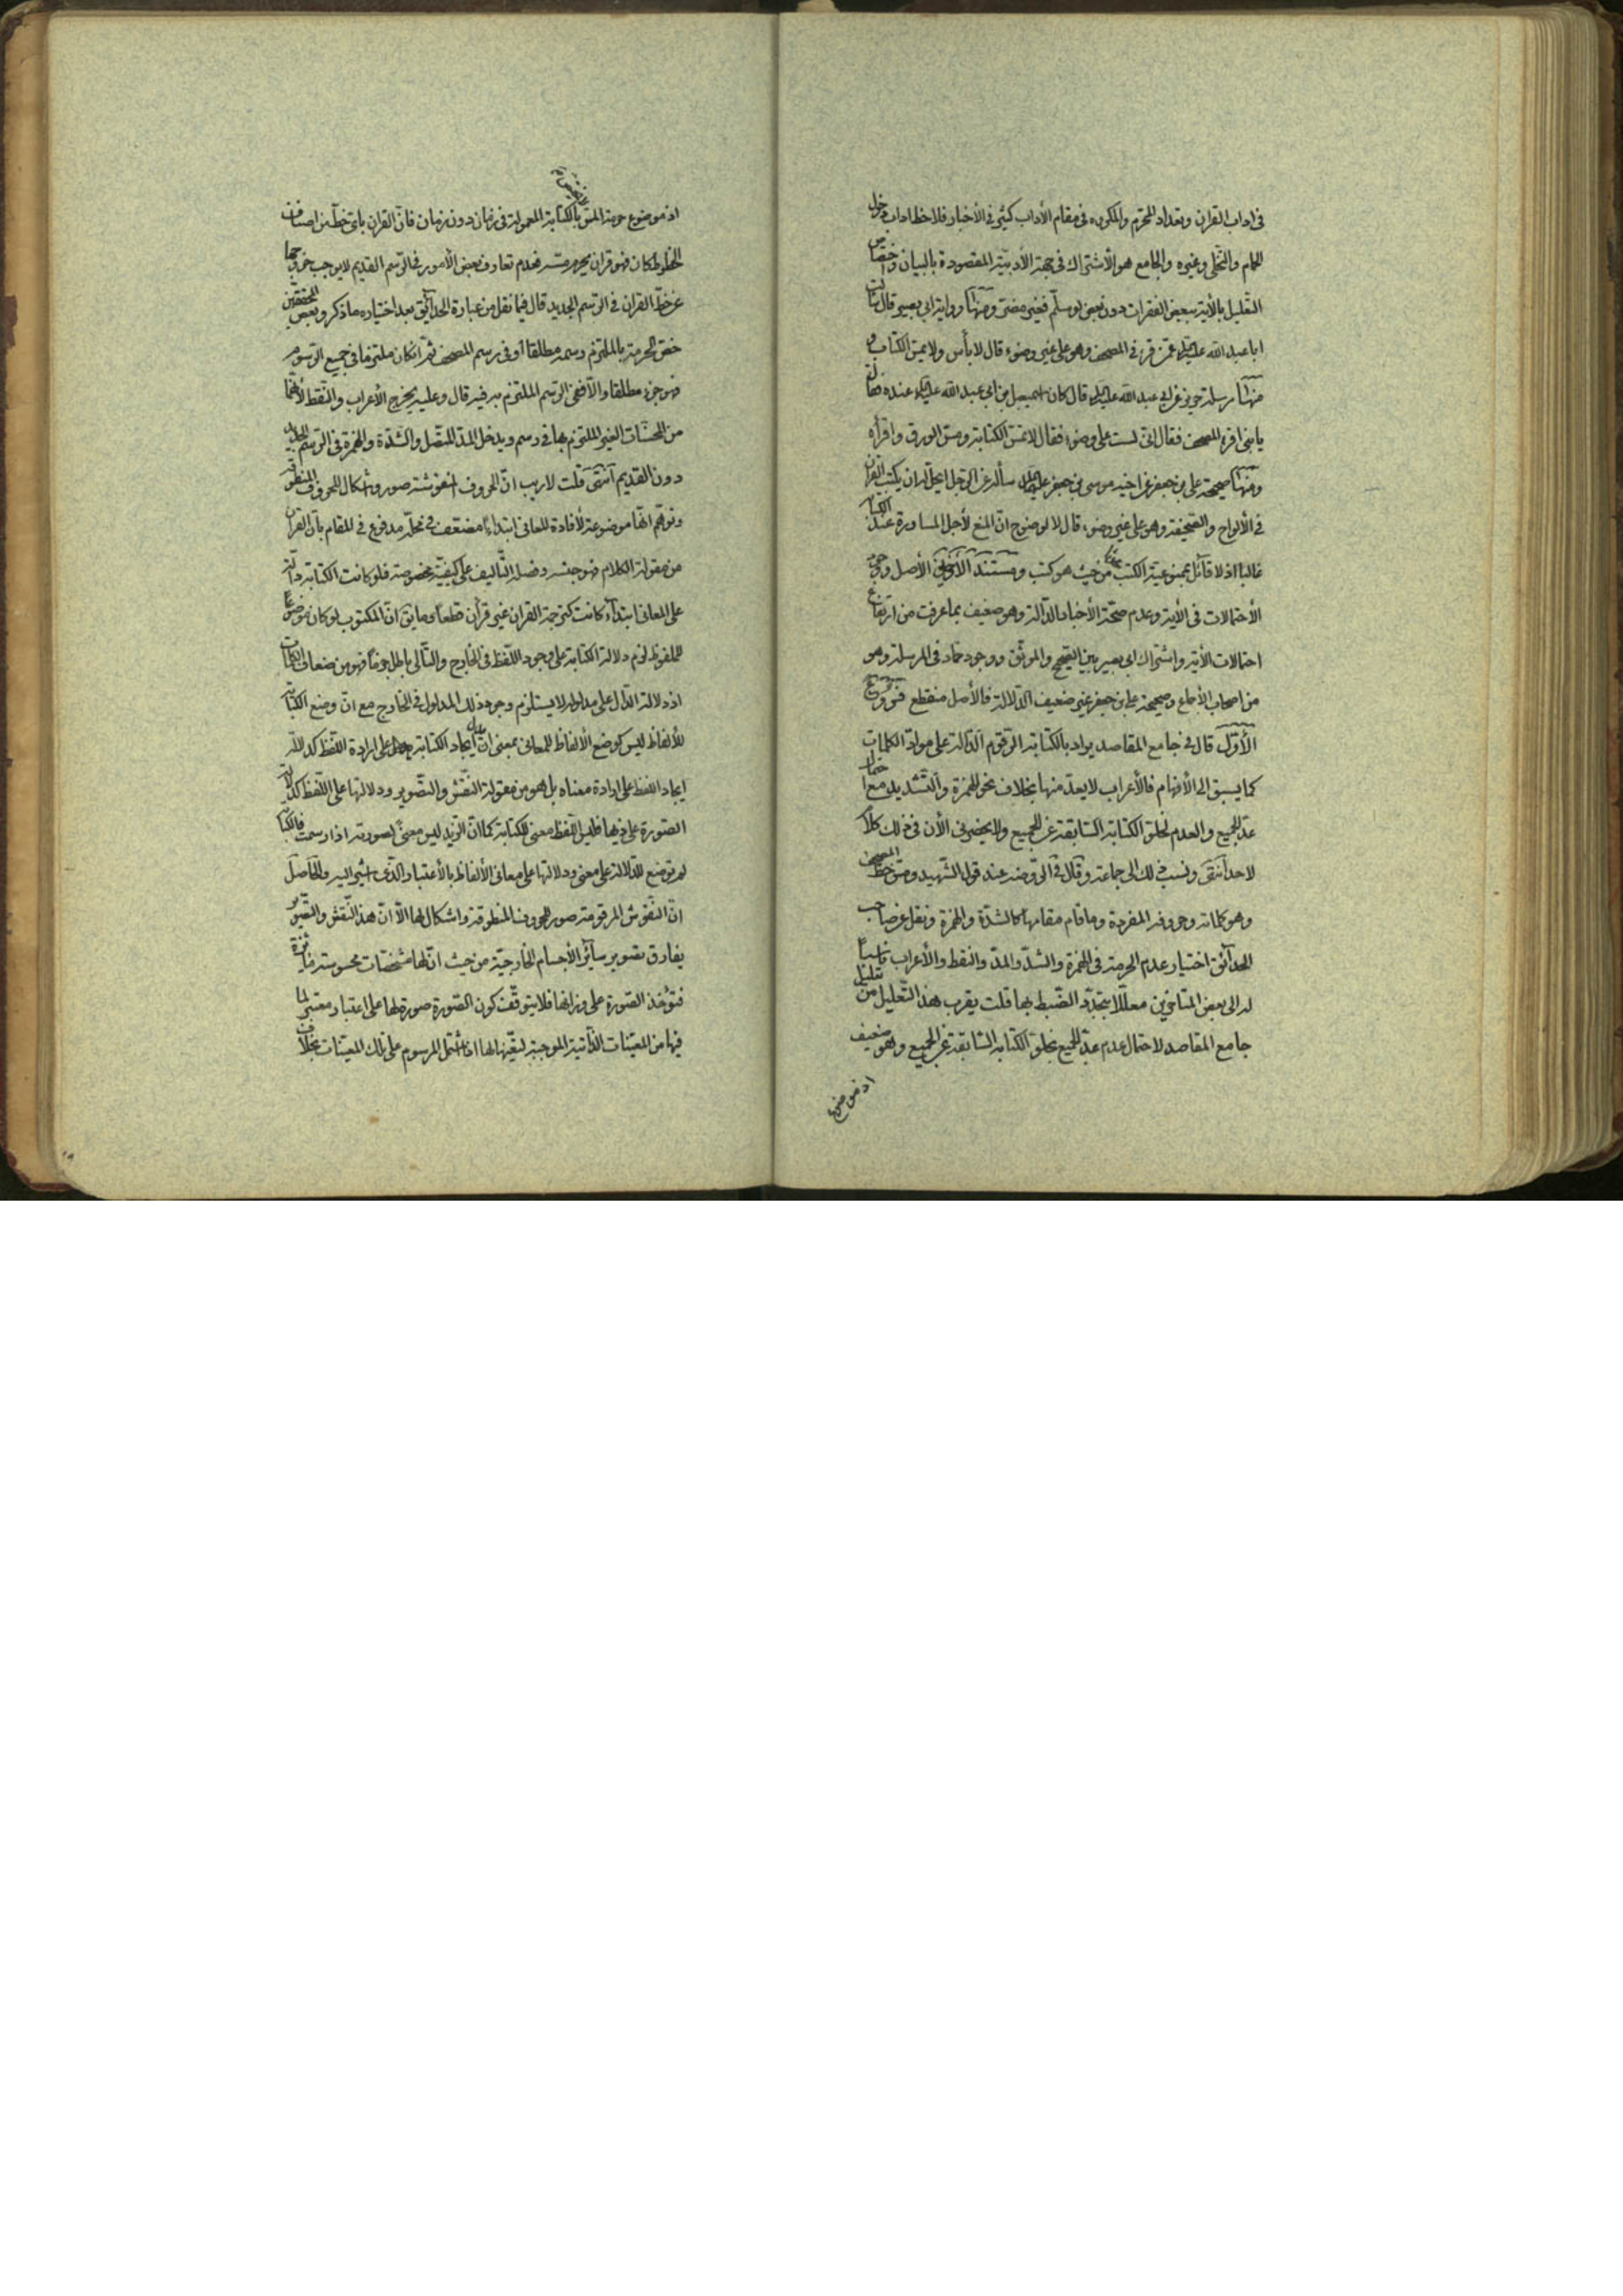 فى اداب القران وتعداد المحرّم والمكروه فى مقام الأداب كثير فى الأخبار فلاحظ اداب دخول
الحمام والتخلّى وغيره والجامع هو الأشتراك فى جهة الأدبيّة المقصودة بالبيان واختصاص
التعليل بالأية ببعض الفقرات دون بعض لو سلّم فغير مضرّ ومنها رواية ابى بصير قال سألت
ابا عبد الله عليه السلام عمّن قرء فى المصحف وهو على غير وضوء قال لا بأس ولا يمسّ الكتاب و
منها مرسلة حريز عن ابى عبد الله عليه السلام قال كان اسمعيل بن ابى عبد الله عليه السلام عنده فقال
يا بنى اقرء المصحف فقال انى لست على وضوء فقال لا تمسّ الكتابة ومسّ الورق واقرأه
ومنها صحيحة على بن جعفر عن اخيه موسى بن جعفر عليه السلام سأله عن الرّجل ايحلّ له ان يكتب القران
فى الألواح والصّحيفة وهو على غير وضوء قال لا لوضوح انّ المنع لأجل المساورة عند الكتابة
غالبا اذ لا قائل بممنوعيّة الكتب من حيث هو كتب ومستند الأخيرين الأصل وجود
الأحتمالات فى الأية وعدم صحّة الأخبار الدّالة وهو ضعيف بما عرفت من ارتفاع
احتمالات الأية واشتراك ابى بصير بين الصّحيح والموثّق ووجود حمّاد فى المرسلة وهو
من اصحاب الأجماع وصحيحة على بن جعفر غير ضعيف الدّلالة فالأصل منقطع فروع
الأوّل قال فى جامع المقاصد يراد بالكتابة الرّقوم الدّالة على موادّ الكلمات
كما يسبق الى الأفهام فالأعراب لا يعدّ منها بخلاف نحو الهمزة والتّشديد مع احتمال
عدّ الجميع والعدم لخلوّ الكتابة السّابقة عن الجميع ولا يحضرنى الأن فى ذلك كلام
لاحد انتهى ونسب ذلك الى جماعة وقال فى الرّوضة عند قول الشّهيد ومسّ خطّ المصحف
وهو كلماته وحروفه المفردة وما قام مقامها كالشدّة والهمزة ونقل عن صاحب
الحدائق اختيار عدم الحرمة فى الهمزة والشدّ والمدّ والنقط والأعراب ناسبا
له الى بعض المتاخّرين معلّلا بتجدّد الضّبط بها قلت يقرب هذا التّعليل من تعليل
جامع المقاصد لاحتمال عدم عدّ الجميع بخلوّ الكتابة السّابقة عن الجميع وهو ضعيف
اذ موضوع
اذ موضوع حرمة المسّ بالكتابة المعمولة فى زمان دون زمان فانّ القران باىّ خطّ من اصناف
الخطوط كان فهو قران يحرم مسّه فعدم تعارف بعض الأمور فى الرّسم القديم لا يوجب خروجها
عن خطّ القران فى الرّسم الجديد قال فيما نقل من عبارة الحدائق بعد اختياره ما ذكر وبعض المحقّقين
خصّ الحرمة بالملتزم رسمه مطلقا او فى رسم المصحف ثمّ ان كان ملتزما فى جميع الرّسوم
فهو جزء مطلقا والّا ففى الرّسم الملتزم به فيه قال وعليه يخرج الأعراب والنّقط لأنّهما
من المحسّنات الغير الملتزم بها فى رسم ويدخل المدّ المتّصل والشدّة والهمزة فى الرّسم الجديد
دون القديم انتهى قلت لا ريب انّ الحروف المنقوشة صور واشكال للحروف المنطوقة
وتوهّم انّها موضوعة لأفادة المعانى ابتداء مضعّف فى محلّه مدفوع فى المقام بأنّ القران
من مقولة الكلام فهو جنسه وفصله التّأليف على كيفيّة مخصوصة فلو كانت الكتابة دالّة
على المعانى ابتداء كانت كترجمة القران غير قرأن قطعا وما يقال انّ المكتوب لو كان موضوعا
للملفوظ لزم دلالة الكتابة على وجود اللّفظ فى الخارج والتّالى باطل جزما فهو من ضعاف الكلمات
اذ دلالة الدّال على مدلوله لا يستلزم وجود ذلك المدلول فى الخارج مع انّ وضع الكتابة
للألفاظ ليس كوضع الألفاظ للمعانى بمعنى انّ ايجاد الكتابة على ارادة اللّفظ كدلالة
ايجاد اللفظ على ارادة معناه بل هو من مقولة النّقش والتّصوير ودلالتها على اللّفظ كدلالة
الصّورة على ذيها فليس اللّفظ معنى للكتابة كما انّ الزيد ليس معنىً لصورته اذا رسمت فالكتابة
لم توضع للدّلالة على معنى ودلالتها على معانى الألفاظ بالأعتبار الّذى اشير اليه والحاصل
انّ النّقوش المرقومة صور للحروف المنطوقة واشكال لها الّا انّ هذا النّقش والتّصوير
يفارق تصوير سائر الأجسام الخارجيّة من حيث انّ لها مشخّصات محسوسة
فتؤخذ الصّورة على وزانها فلا يتوقّف كون الصّورة صورة لها على اعتبار معتبر لما
فيها من المعيّنات الذّاتية الموجبة لتعيّنها لها اذا اشتمل المرسوم على تلك المعيّنات بخلاف